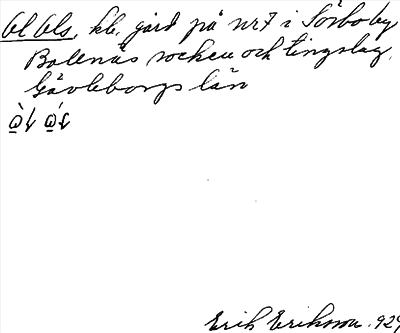 Ol Ols, kle, gård på nr 7 i Sörboby
Bolenäs socken och tingslag,
Gävleborgs län
Erik Eriksson. 929